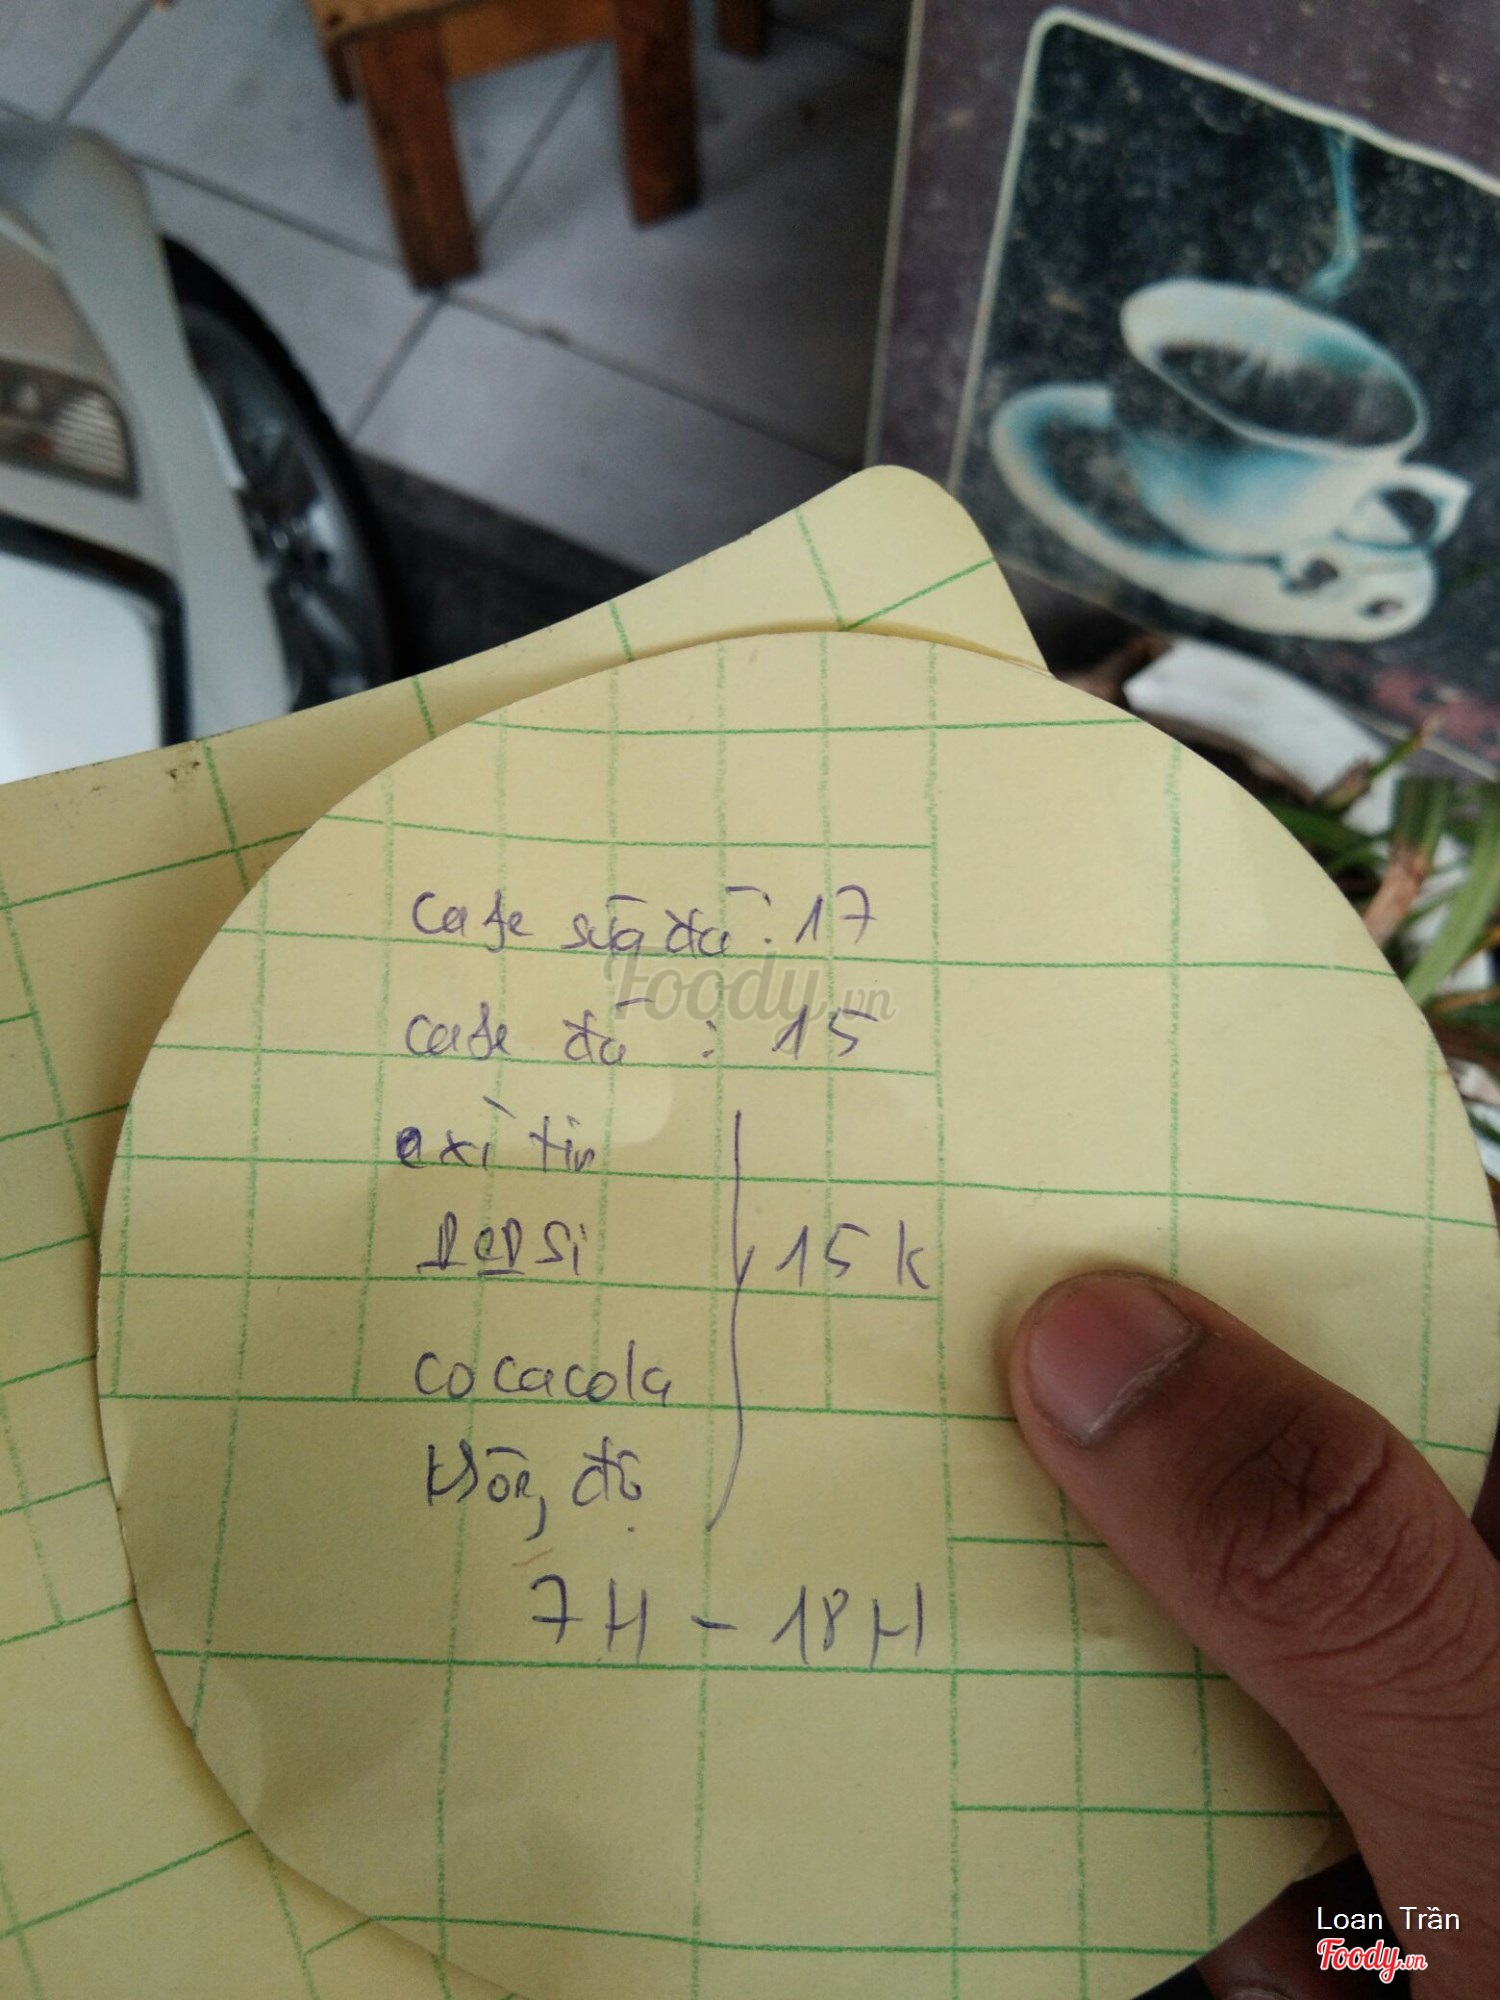 Cafe sữa đá: 17
cafe đá : 15
xì tin
Pepsi
15 k
cocacola
không độ
7H - 18H
Foody.vn
Loan Trần
Foody.vn